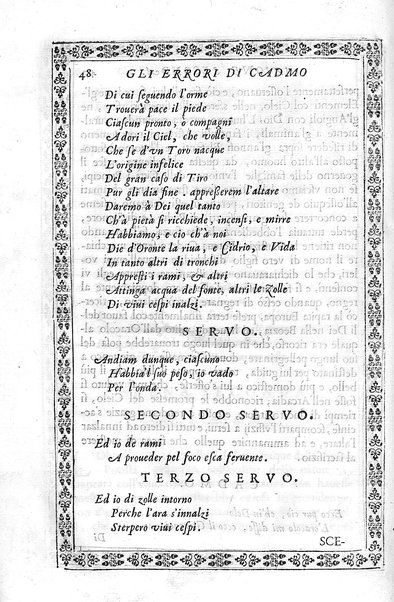 48 GLI ERRORI DI CADMO
Di cui seguendo l'orme
Trouerà pace il piede
Ciascun pronto, o compagni
Adori il Ciel, che volle,
Che se d'vn Toro nacque
L'origine infelice
Del gran caso di Tiro
Pur gli dia fine. appresserem l'altare
Daremo à Dei quel tanto
Ch'à pietà si ricchiede, incensi, e mirre
Habbiamo, e cio ch'à noi
Die d'Oronte la riua, e Cidrio, e Vida
In tanto altri di tronchi
Appresti i rami, & altri
Attinga acqua del fonte, altri le Zolle
Di viui cespi inalzi.
SERVO.
Andiam dunque, ciascuno
Habbia'l suo peso, io vado
Per l'onda.
SECONDO SERVO.
Ed io de rami
A proueder pel foco esca feruente.
TERZO SERVO.
Ed io di zolle intorno
Perche l'ara s'innalzi
Sterpero viui cespi.
SCE-